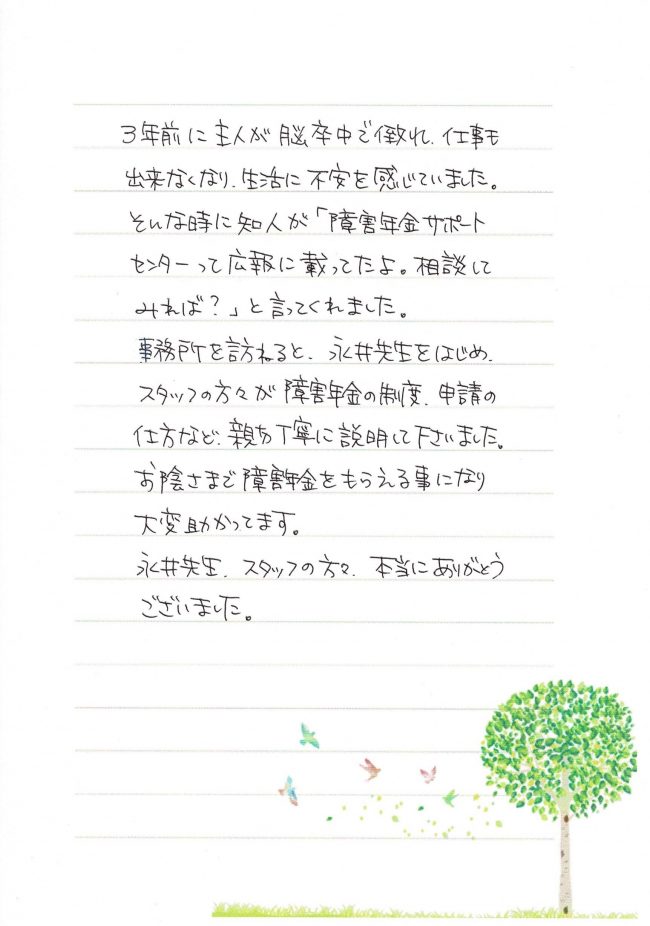 3年前に主人が脳卒中で倒れ、仕事も
出来なくなり、生活に不安を感じていました。
そんな時に知人が「障害年金サポート
センターって広報に載ってたよ。相談して
みれば?」と言ってくれました。
事務所を訪ねると、永井先生をはじめ、
スタッフの方々が障害年金の制度、申請の
仕方など、親切丁寧に説明して下さいました。
お陰さまで障害年金をもらえる事になり
大変助かってます。
永井先生、スタッフの方々、本当にありがとう
ございました。